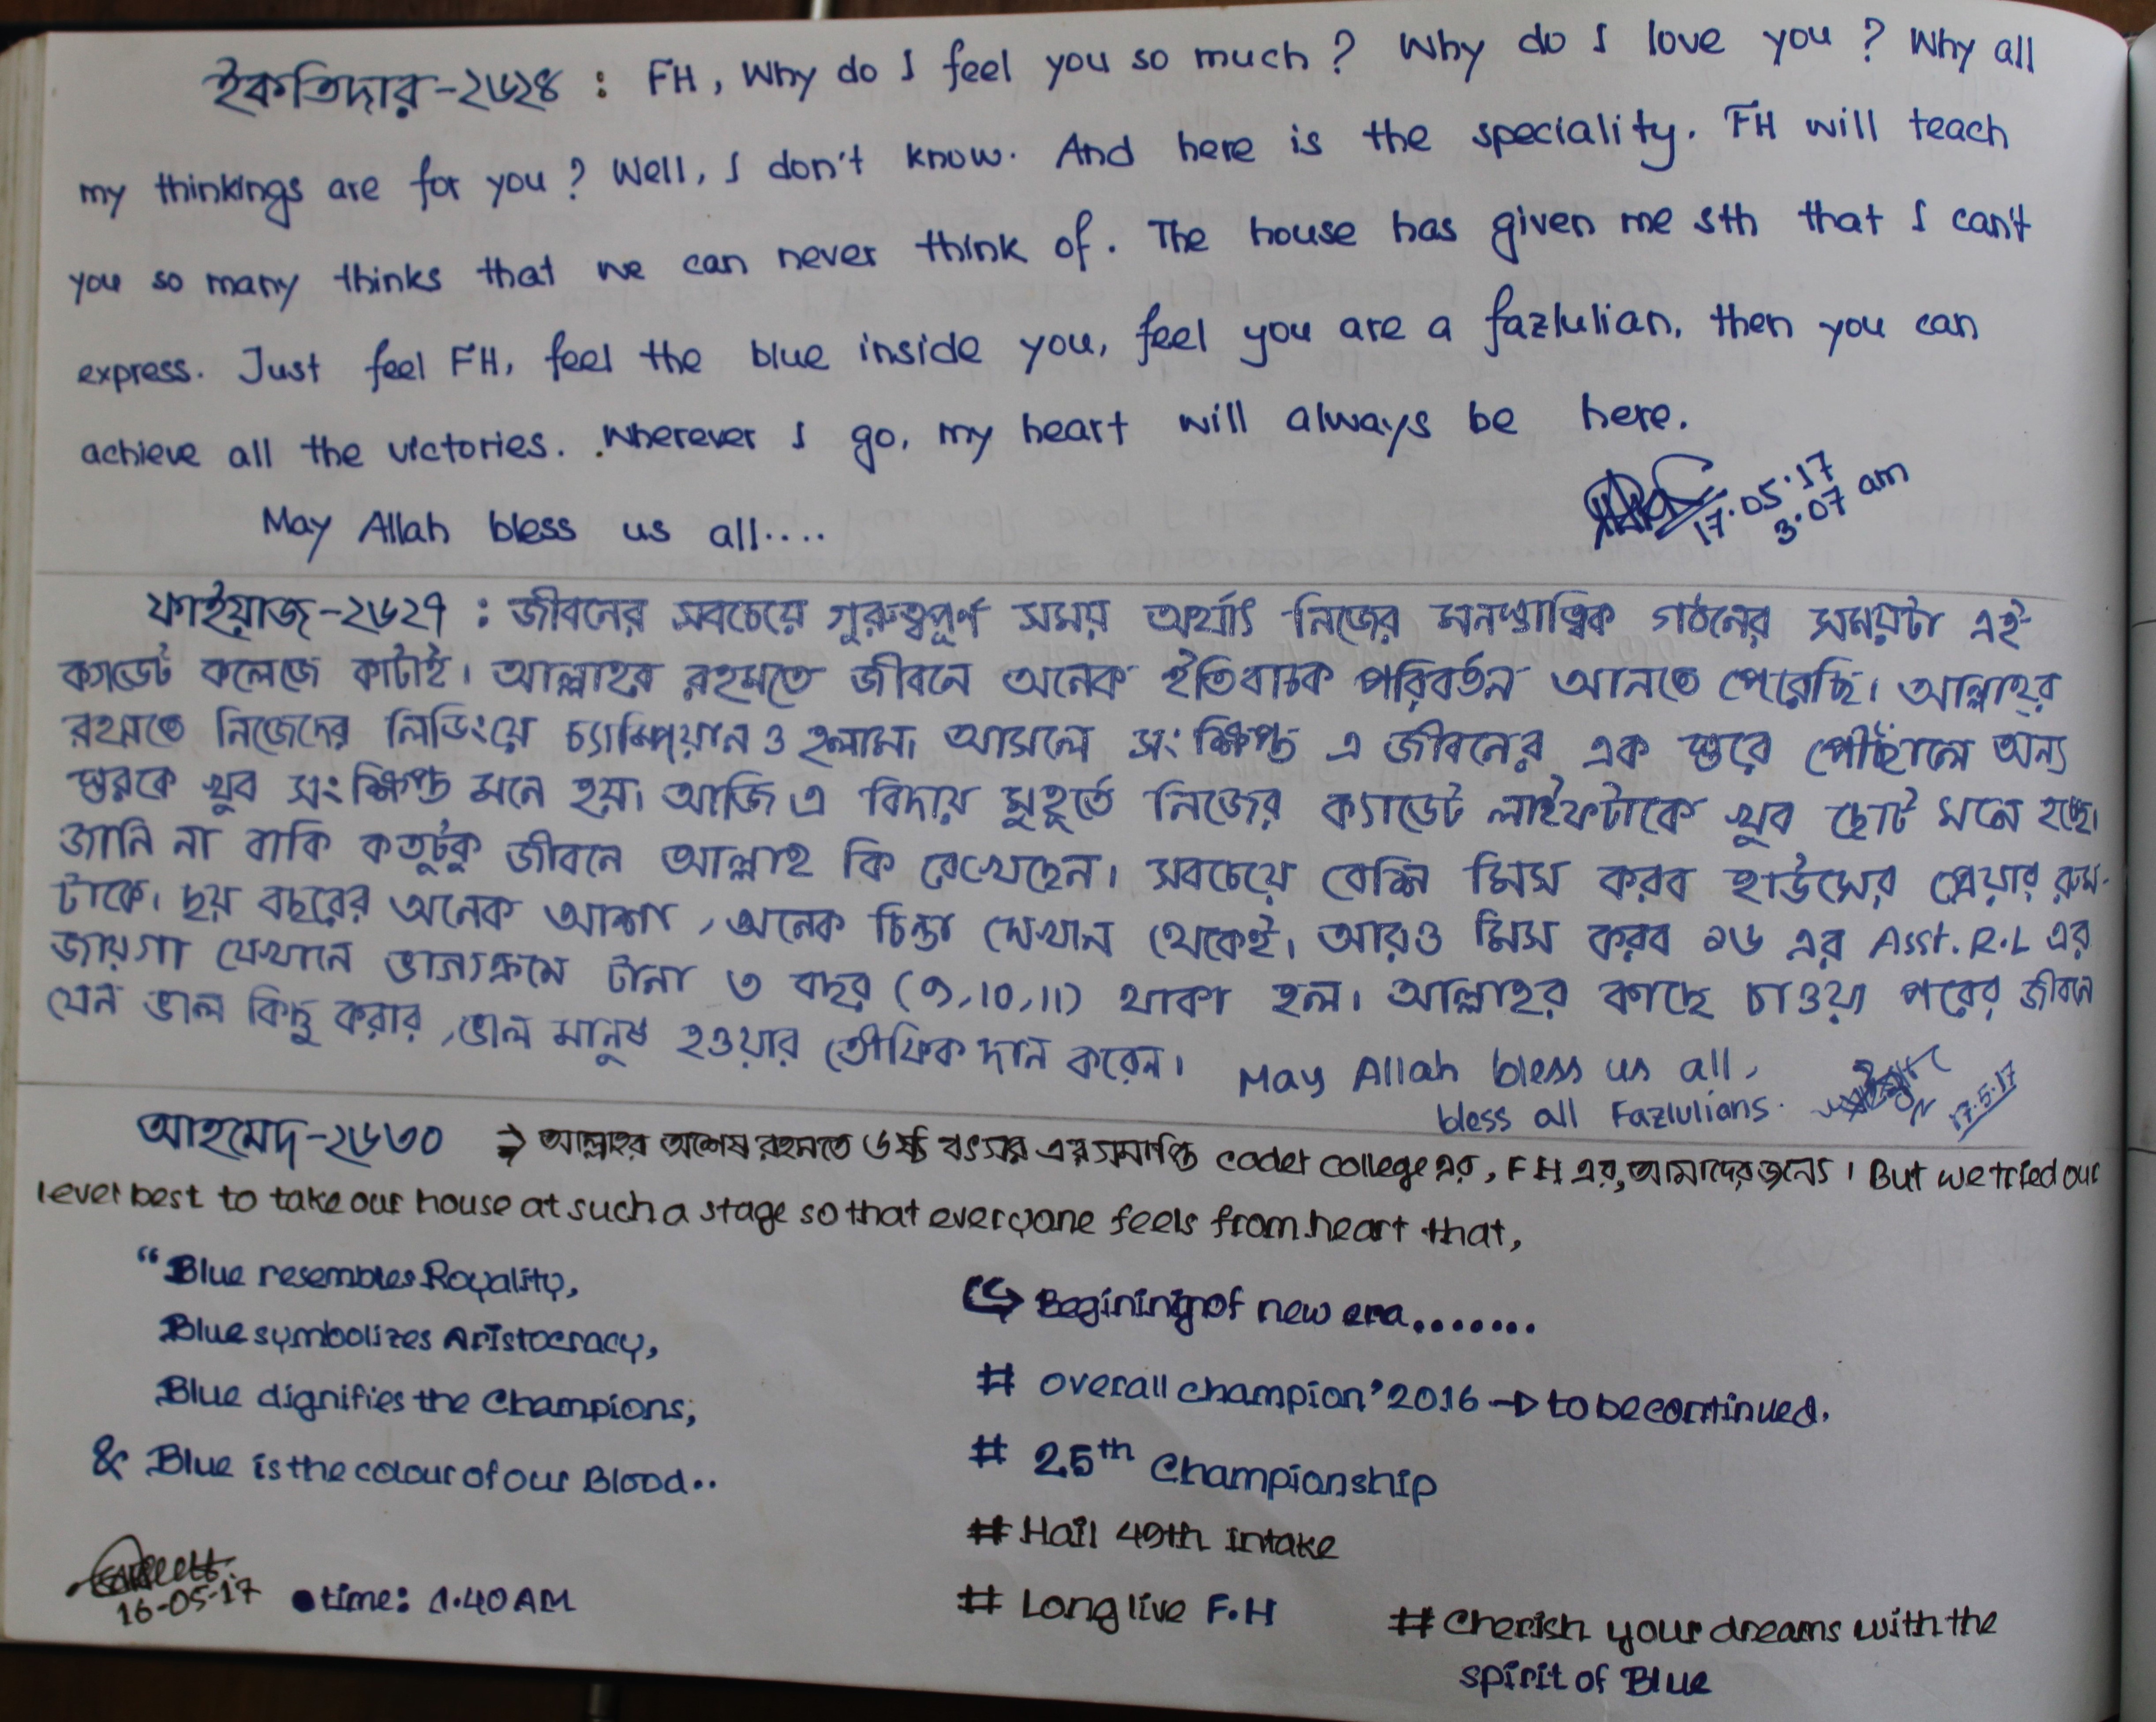 ইকতিদার-২৬২৪ : FH, Why do I feel you so much? Why do I love you? Why all
my thinkings are for you? Well, I don't know. And here is the speciality. FH will teach
you so many thinks that we can never think of. The house has given me sth that I can't
express. Just feel FH, feel the blue inside you, feel you are a fazlulian, then you can
achieve all the victories. Wherever I go, my heart will always be here.
May Allah bless us all....
17.05.17
3.07 am
ফাইয়াজ-২৬২৭ : জীবনের সবচেয়ে গুরুত্বপূর্ণ সময় অর্থাৎ নিজের মনস্তাত্ত্বিক গঠনের সময়টা এই
ক্যাডেট কলেজে কাটাই। আল্লাহর রহমতে জীবনে অনেক ইতিবাচক পরিবর্তন আনতে পেরেছি। আল্লাহর
রহমতে নিজেদের লিডিংয়ে চ্যাম্পিয়ান ও হলাম। আসলে সংক্ষিপ্ত এ জীবনের এক স্তরে পৌঁছালে অন্য
স্তরকে খুব সংক্ষিপ্ত মনে হয়। আজি এ বিদায় মুহূর্তে নিজের ক্যাডেট লাইফটাকে খুব ছোট মনে হচ্ছে।
জানি না বাকি কতটুকু জীবনে আল্লাহ কি রেখেছেন। সবচেয়ে বেশি মিস করব হাউসের প্রেয়ার রুম-
টাকে। ছয় বছরের অনেক আশা, অনেক চিন্তা সেখান থেকেই। আরও মিস করব ১৬ এর Asst. R.L এর
জায়গা যেখানে ভাগ্যক্রমে টানা ৩ বছর (9,10,11) থাকা হল। আল্লাহর কাছে চাওয়া পরের জীবনে
যেন ভাল কিছু করার, ভাল মানুষ হওয়ার তৌফিক দান করেন। May Allah bless us all,
bless all Fazlulians.
17.5.17
আহমেদ-২৬৩০ → আল্লাহর অশেষ রহমতে ৬ষ্ঠ বৎসর এর সমাপ্তি cadet college এর, FH এর, আমাদের জন্যে। But we tried our
level best to take our house at such a stage so that everyone feels from heart that,
“Blue resembles Royality,
Blue symbolizes Aristocracy,
Blue dignifies the Champions,
& Blue is the colour of our Blood..
16-05-17 • time: 1.40 AM
↪ Begining of new era.......
# overall champion'2016 → to be continued.
# 25th Championship
# Hail 49th intake
# Long live F.H
# Cherish your dreams with the
spirit of Blue